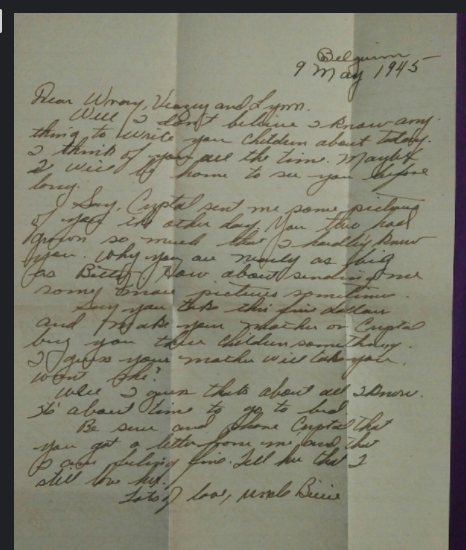 Belgium
9 May 1945
Dear Wrory, Veazey and Lynn.
Well I don't believe I know any
thing to write you children about today.
I think of you all the time. Maybe
I will be home to see you before
long.
I say, Crystal sent me some pictures
of you the other day. You two had
grown so much that I hardly knew
you. Why you are nearly as big
as Billy. How about sending me
some more pictures sometime.
Say you take this five dollars
and make your mother or Crystal
buy you three children something.
I guess your mother will take you,
wont she?
Well I guess thats about all I know.
It's about time to go to bed
Be sure and phone Crystal that
you got a letter from me and that
I am feeling fine. Tell her that I
still love her.
Lots of love, Uncle Billie